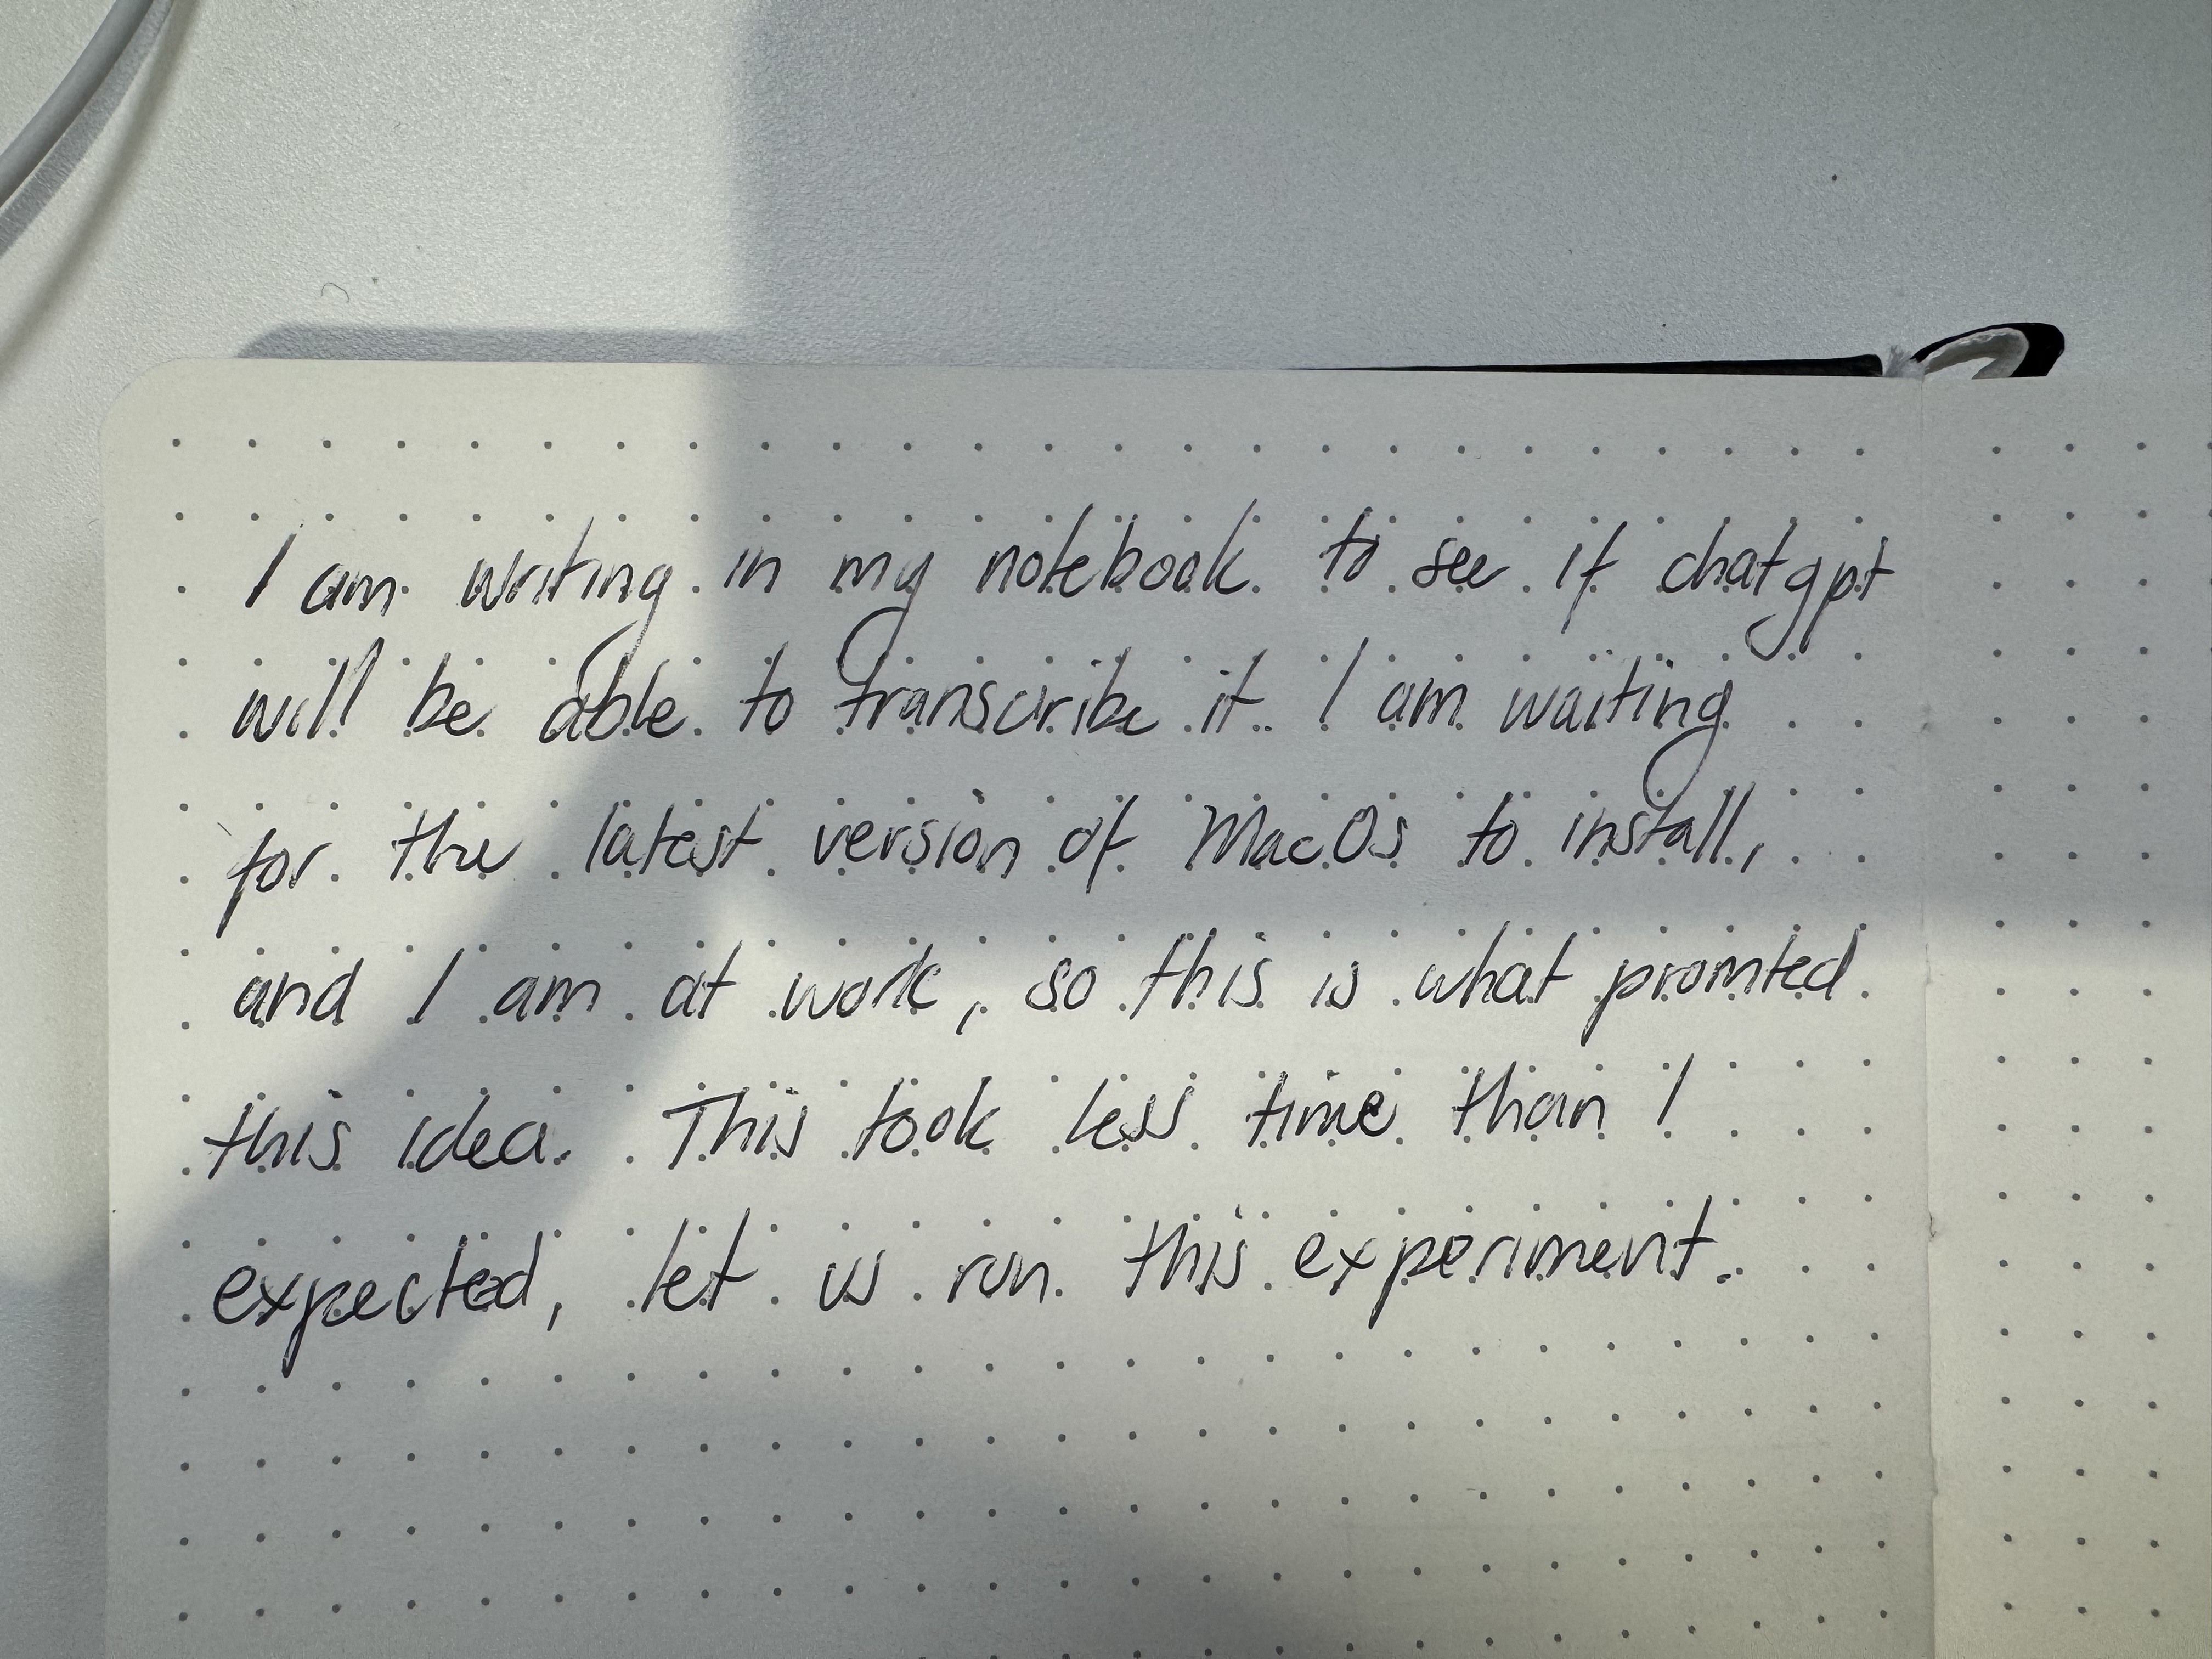 I am writing in my notebook to see if chatgpt
will be able to transcribe it. I am waiting
for the latest version of MacOs to install,
and I am at work, so this is what promted
this idea. This took less time than I
expected, let us run this experiment.